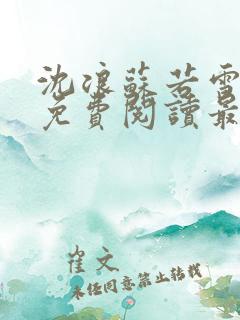 沈浪蘇若雪
免費閱讀最
崔文
未经同意禁止转载